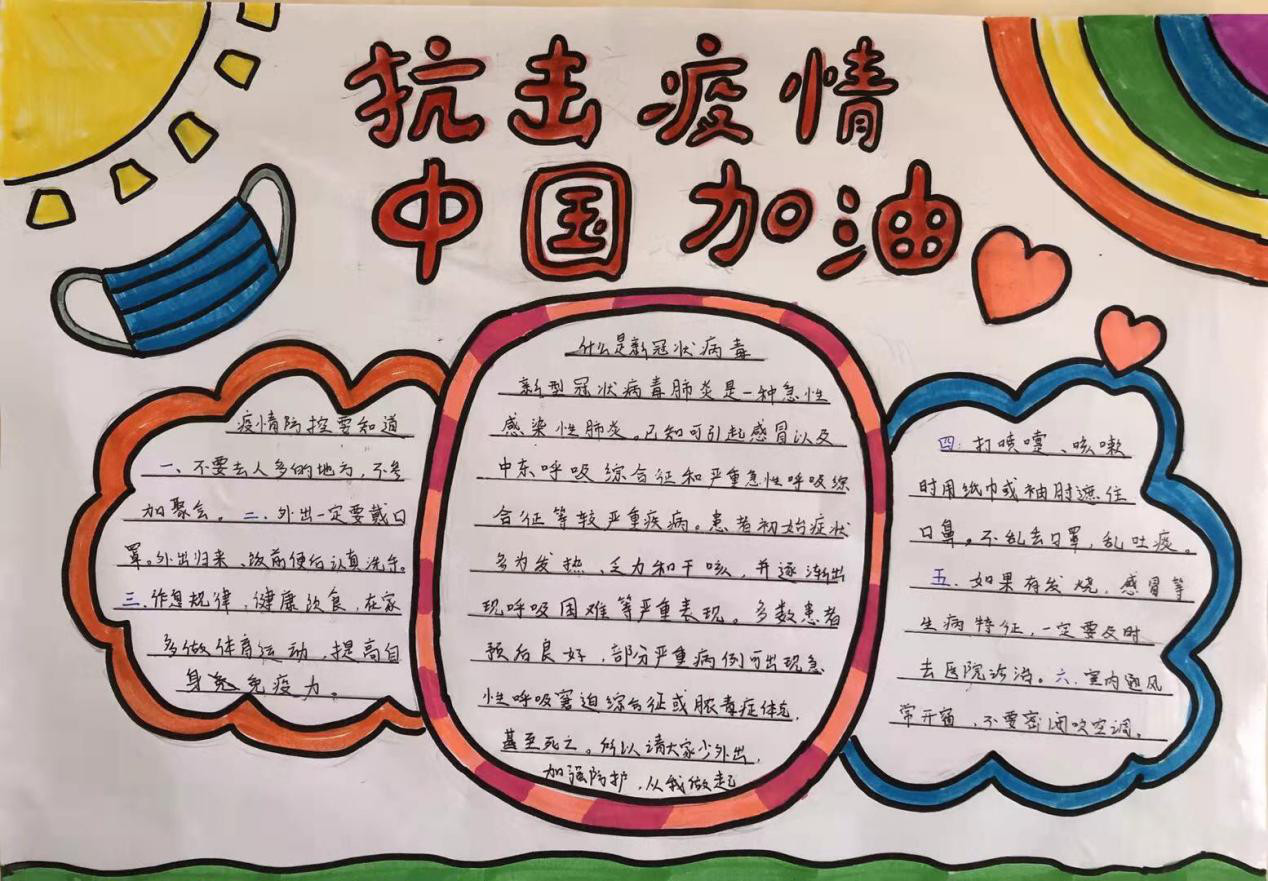 抗击疫情
中国加油
疫情防控要知道
一、不要去人多的地方,不参
加聚会。二、外出一定要戴口
罩。外出归来、饭前便后认真洗手。
三、作息规律,健康饮食,在家
多做体育运动,提高自
身免疫力。
什么是新冠状病毒
新型冠状病毒肺炎是一种急性
感染性肺炎。已知可引起感冒以及
中东呼吸综合征和严重急性呼吸综
合征等较严重疾病。患者初始症状
多为发热、乏力和干咳,并逐渐出
现呼吸困难等严重表现。多数患者
预后良好,部分严重病例可出现急
性呼吸窘迫综合征或脓毒症休克,
甚至死亡。所以请大家少外出,
加强防护,从我做起
四、打喷嚏、咳嗽
时用纸巾或袖肘遮住
口鼻。不乱丢口罩,乱吐痰。
五、如果有发烧,感冒等
生病特征,一定要及时
去医院诊治。六、室内通风
常开窗,不要密闭吹空调。